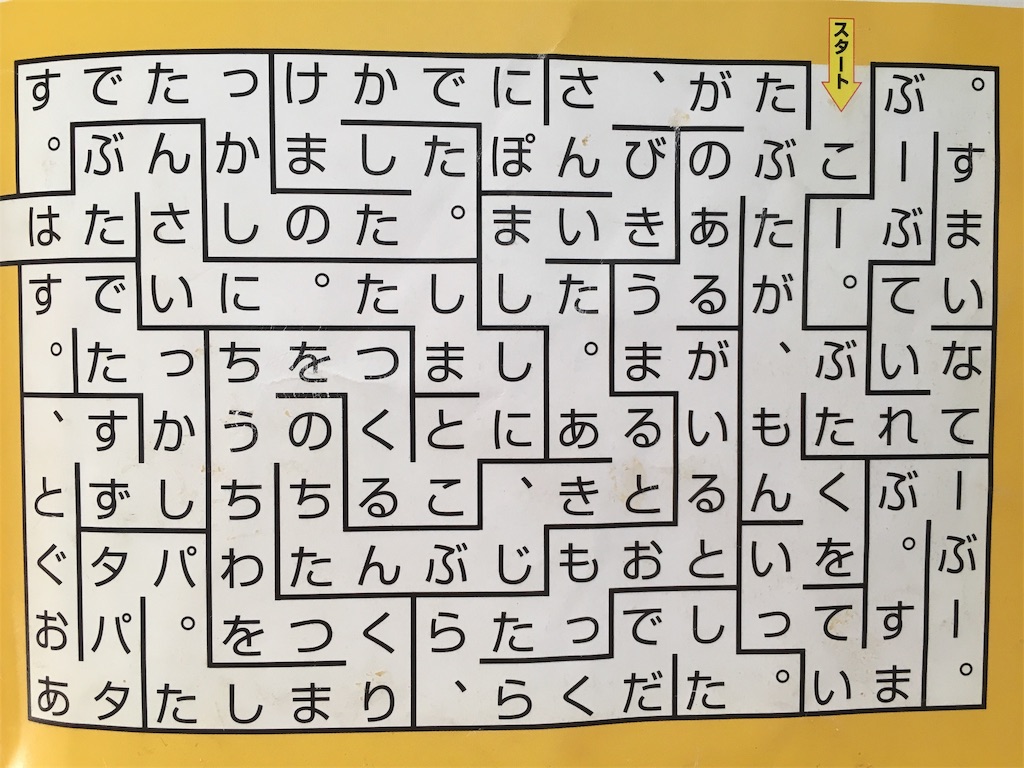 スタート
。すまいなてーぶー。
ぶーぶていれぶ。すま
こー。ぶたくをてい
たぶたが、もんいっ。
がのあるがいるとした
、びきうまるとおでだ
さんいた。あきもっく
にぽまししに、じたら
でた。しまとこぶら、
かしたたつくるんくり
けまの。をのちたつま
っかしにちうちわをし
たんさいっかしパ。た
でぶたでたすずタパタ
す。はす。、とぐおあ